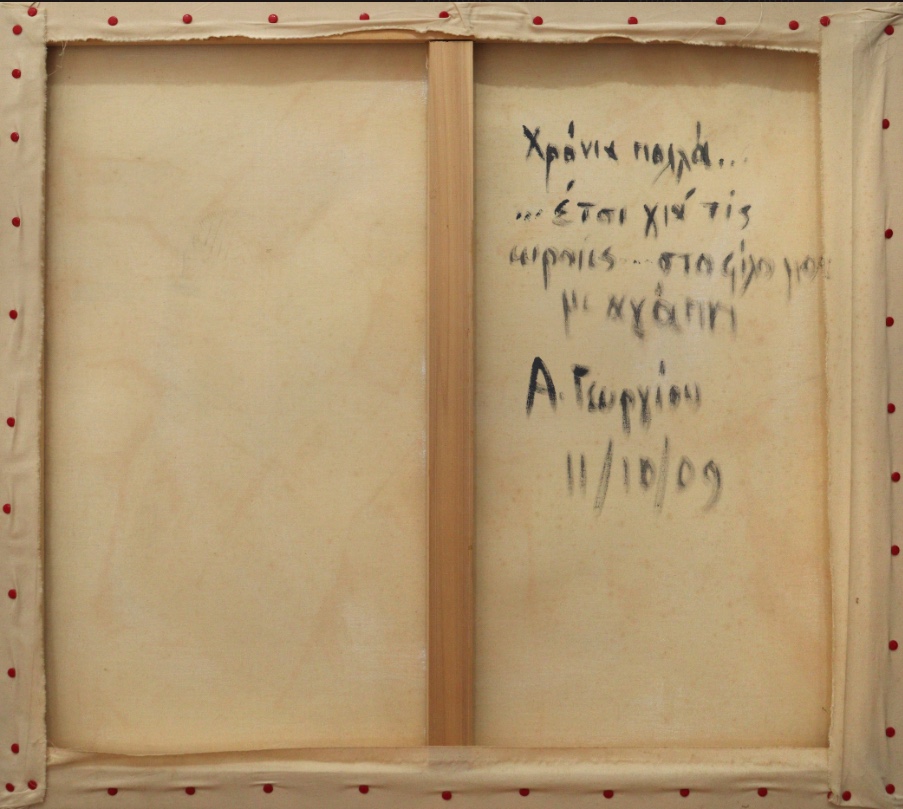 Χρόνια πολλά...
...έτσι γιά τίς
ωραίες... στο φίλο μου
με αγάπη
Α. Γεωργίου
11/10/09